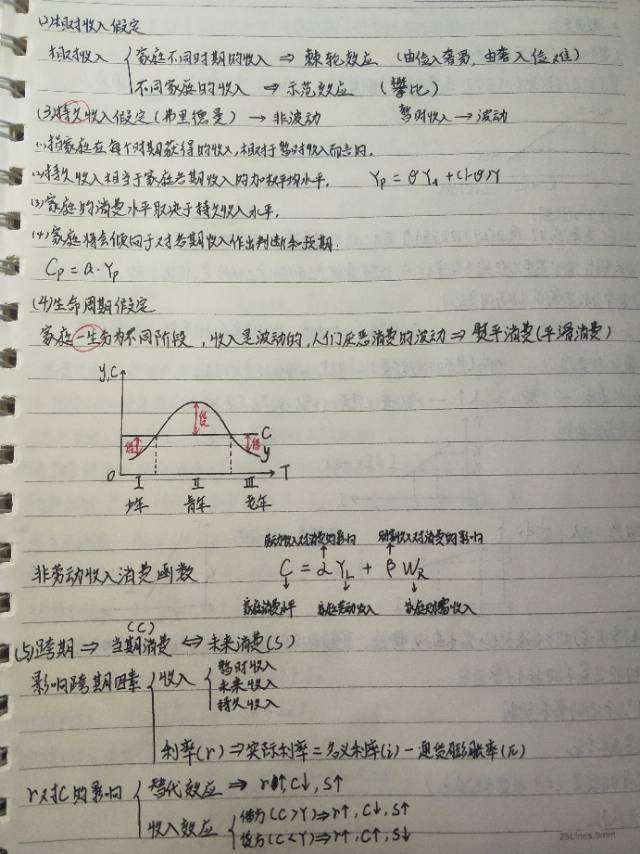 (2)相对收入假定
相对收入 { 家庭不同时期的收入 ⇒ 棘轮效应 (由俭入奢易，由奢入俭难)
不同家庭的收入 ⇒ 示范效应 (攀比)
(3)持久收入假定(弗里德曼) → 非波动 暂时收入 → 波动
(1)指家庭在每个时期获得的收入，相对于暂时收入而言的.
(2)持久收入相当于家庭各期收入的加权平均水平. Yp = θY₁ + (1-θ)Y
(3)家庭的消费水平取决于持久收入水平.
(4)家庭将会倾向于对各期收入作出判断和预期.
Cp = a·Yp
(4)生命周期假定
家庭一生分为不同阶段，收入是波动的，人们厌恶消费的波动 ⇒ 熨平消费(平滑消费)
Y,C
贷
借 借 C
Y
O Ⅰ Ⅱ Ⅲ T
少年 青年 老年
劳动收入对消费的影响 财富收入对消费的影响
非劳动收入消费函数 C = αYL + βWR
家庭消费水平 家庭劳动收入 家庭财富收入
(C)
(5)跨期 ⇒ 当期消费 ⇔ 未来消费(S)
影响跨期因素 { 收入 { 暂时收入
未来收入
持久收入
利率(r) ⇒ 实际利率 = 名义利率(i) - 通货膨胀率(π)
r对C的影响 { 替代效应 ⇒ r↑, C↓, S↑
收入效应 { 借方(C>Y) ⇒ r↑, C↓, S↑
贷方(C<Y) ⇒ r↑, C↑, S↓
25Lines.9mm